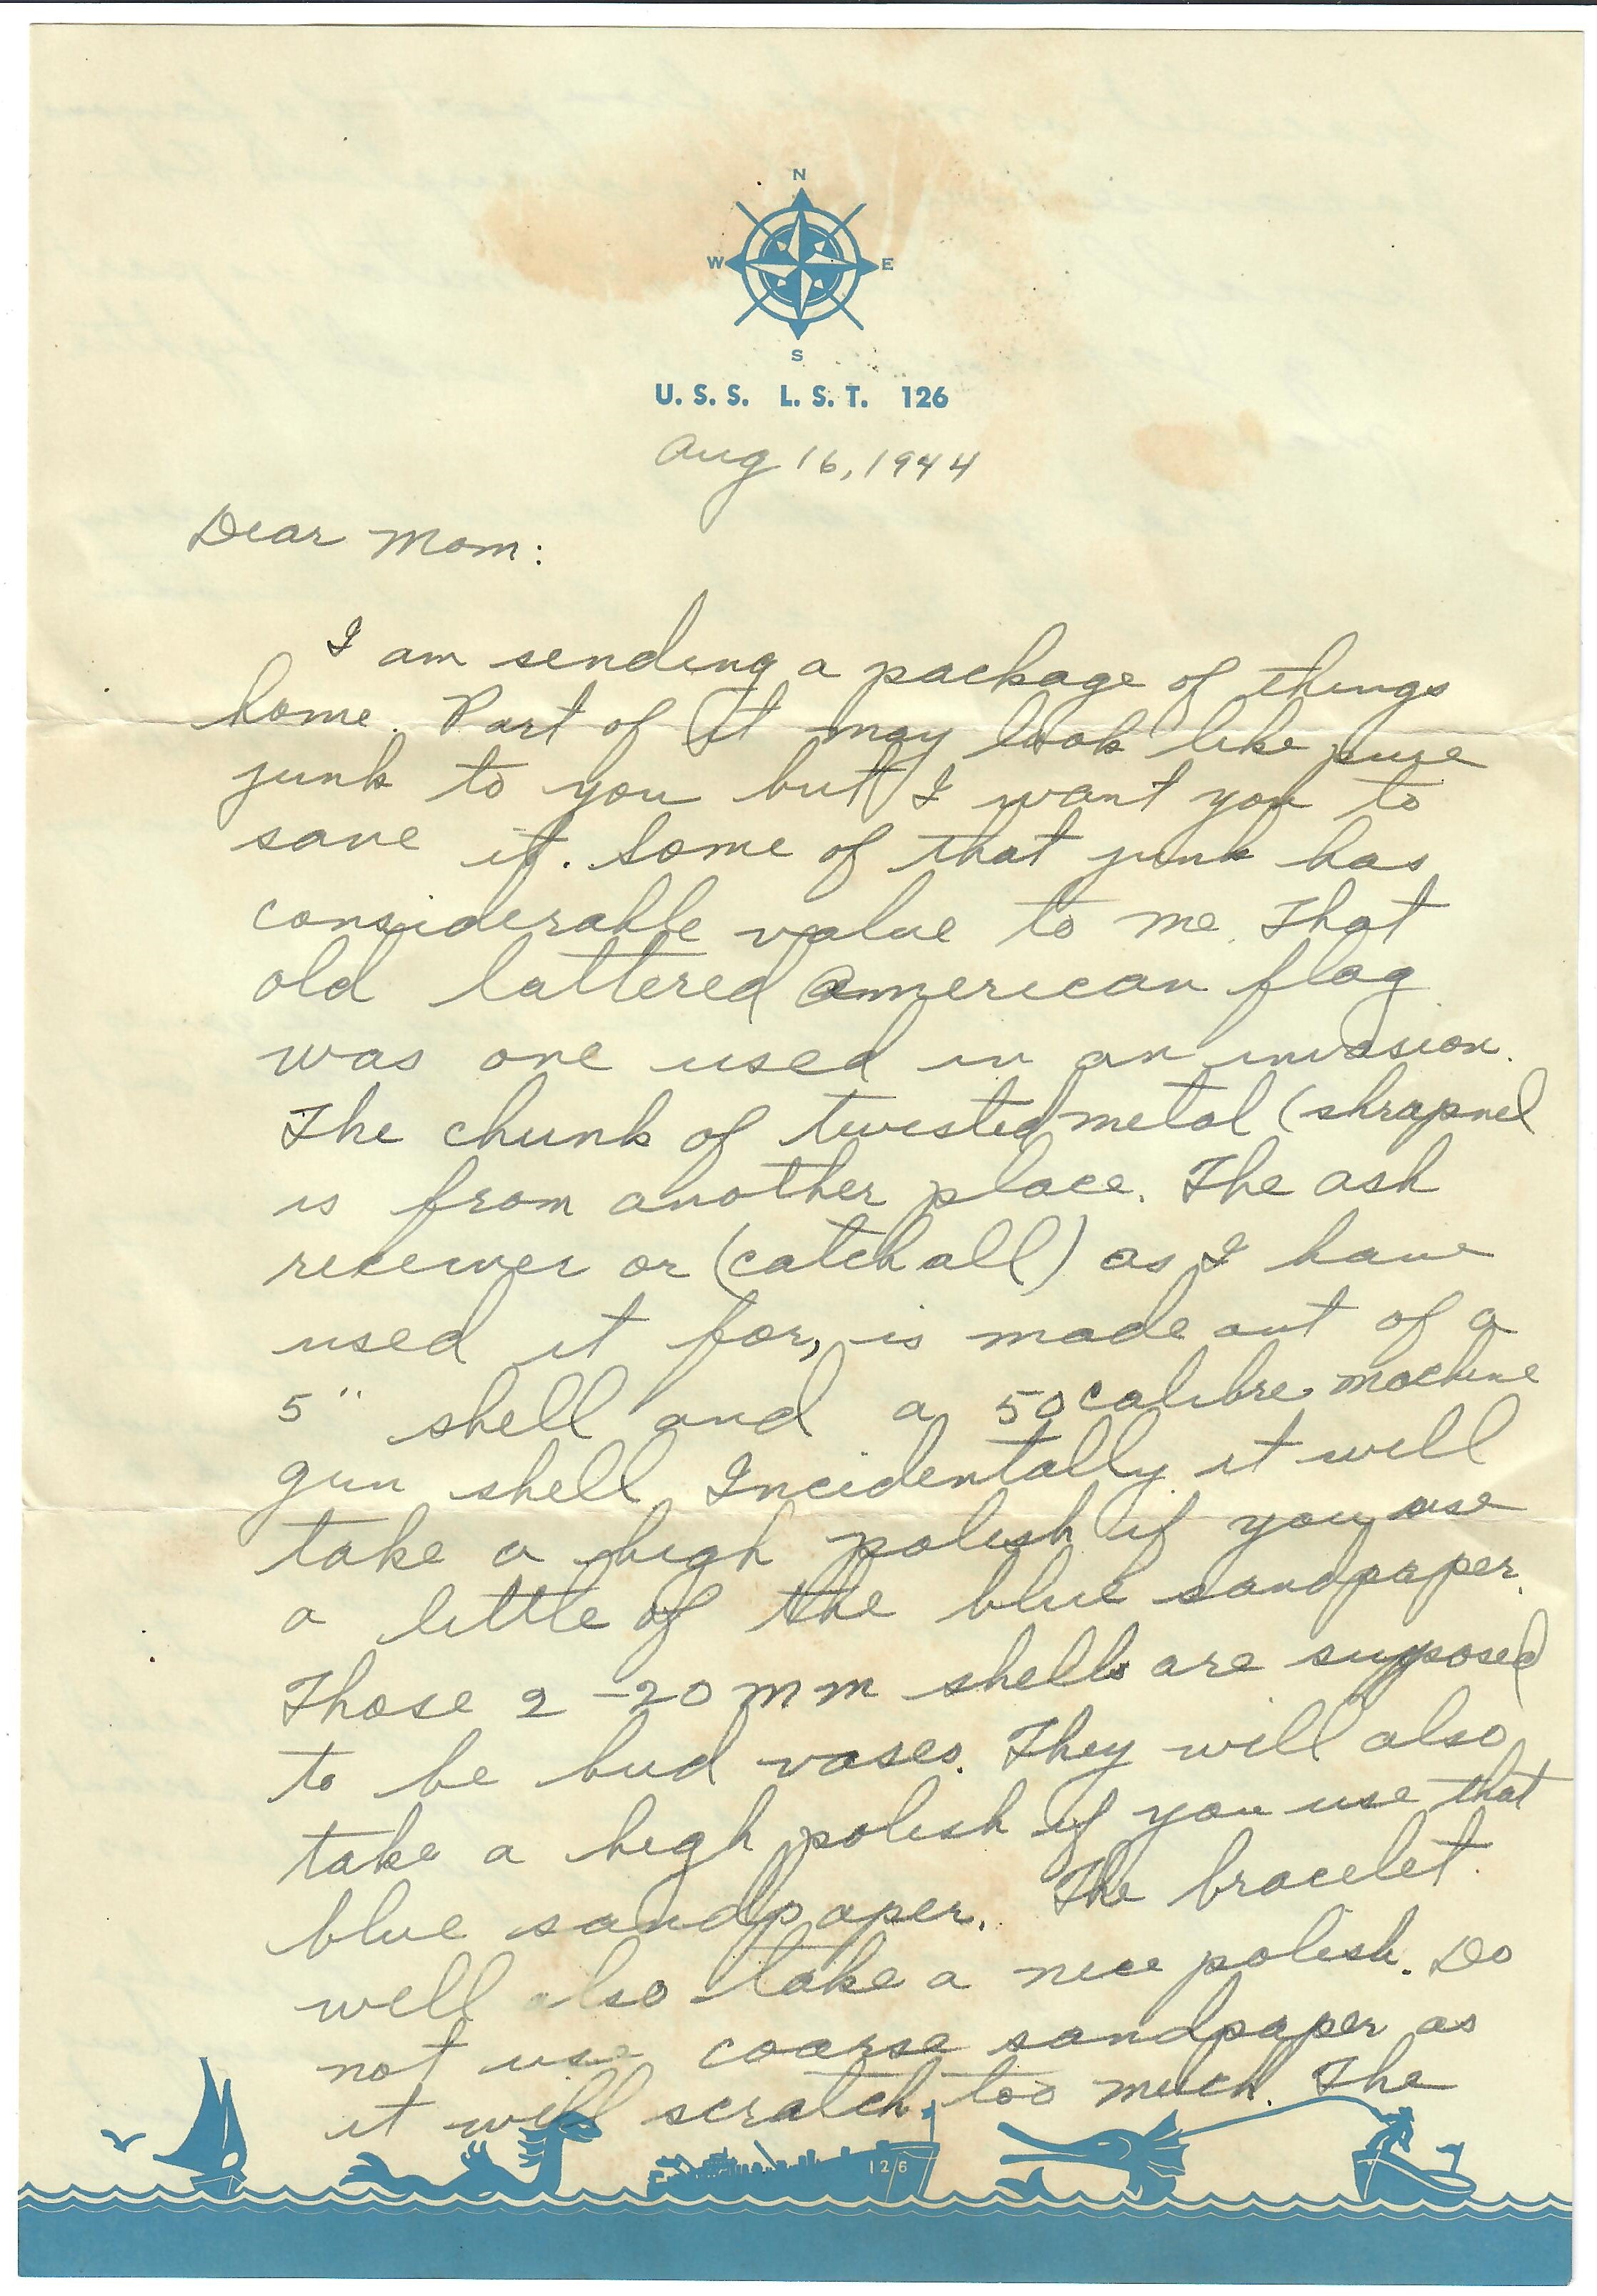 N
W E
S
U. S. S. L. S. T. 126
Aug 16, 1944
Dear Mom:
I am sending a package of things
home. Part of it may look like pure
junk to you but I want you to
save it. Some of that junk has
considerable value to me. That
old tattered American flag
was one used in an invasion.
The chunk of twisted metal (shrapnel
is from another place. The ash
receiver or (catch all) as I have
used it for, is made out of a
5" shell and a 50 calibre machine
gun shell. Incidentally it will
take a high polish if you use
a little of the blue sandpaper.
Those 2 - 20 MM shells are supposed
to be bud vases. They will also
take a high polish if you use that
blue sandpaper. The bracelet
will also take a nice polish. Do
not use coarse sandpaper as
it will scratch too much. The
126